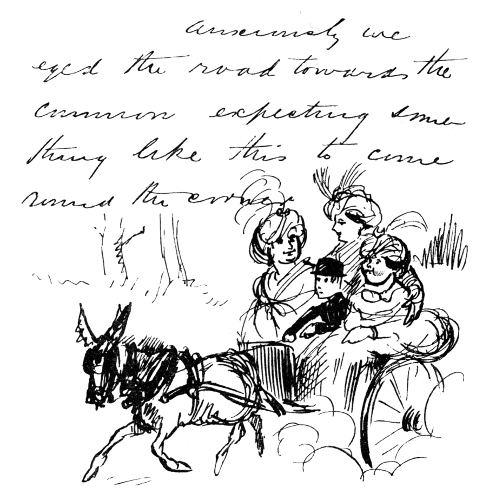 anxiously we
eyed the road towards the
common expecting some
thing like this to come
round the corner